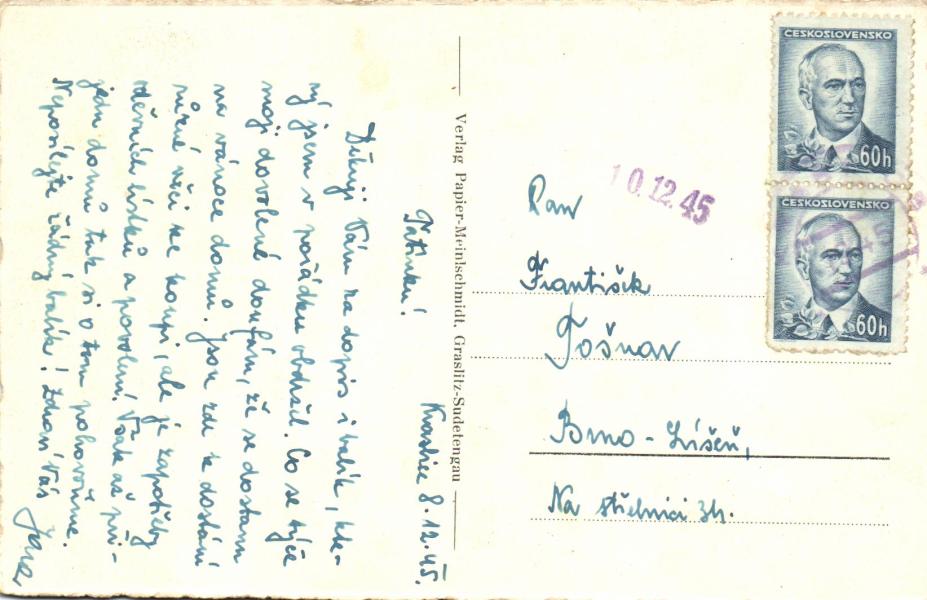 Kraslice 8.12.45.
Tatínku!
Děkuji Vám za dopis i balík, kte-
rý jsem v pořádku obdržel. Co se týče
mojí dovolené doufám, že se dostanu
na vánoce domů. Jsou zde k dostání
různé věci ke koupi, ale je zapotřeby
oděvních lístků a povolení. Však až při-
jedu domů tak si o tom pohovoříme.
Neposílejte žádný balík! Zdraví Vás
Verlag Papier-Meinlschmidt, Graslitz-Sudetengau
10.12.45
ČESKOSLOVENSKO
60h
ČESKOSLOVENSKO
60h
Pan
František
Tošnar
Brno - Líšeň,
Na střelnici 34.